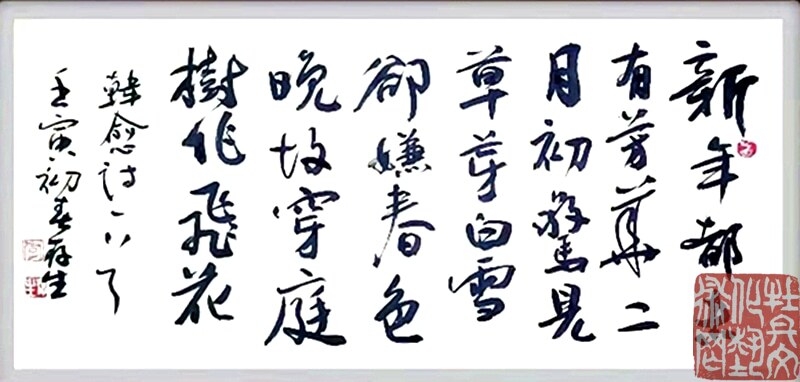 新年都未
有芳華二
月初驚見
草芽白雪
卻嫌春色
晚故穿庭
樹作飛花
韓愈詩一首
壬寅初春存生